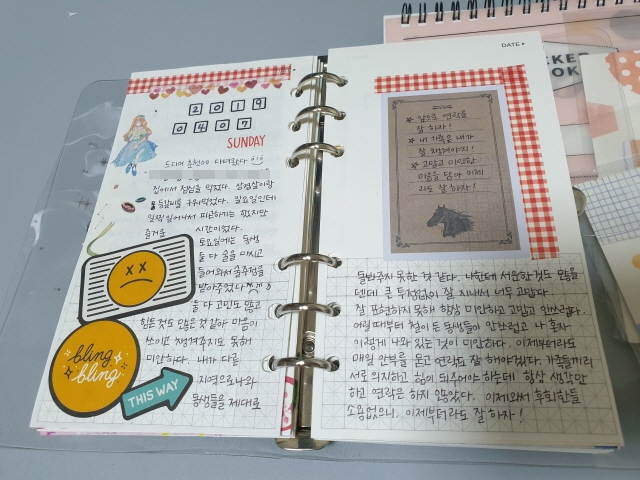 2019
0407
SUNDAY
드디어 춘천에 다녀왔다
집에서 점심을 먹었다. 삼겹살이랑
등갈비를 구워먹었다. 일요일인데
일찍 일어나서 피곤하기는 했지만
즐거운 시간이었다.
토요일에는 동생
둘 다 술을 마시고
들어와서 술주정을
받아주었다
둘 다 고민도 많고
힘든것도 많은것 같아 마음이
쓰이고 챙겨주지도 못해
미안하다. 내가 다른
지역으로 나와
동생들을 제대로
bling
bling
THIS WAY
DATE
앞으로 연락을
잘 하자!
내 가족은 내가
잘 챙겨야지!
고맙고 미안한
마음을 담아 이제
라도 잘 하자!
돌봐주지 못한 것 같다. 나한테 서운한 것도 많을
텐데 큰 투정없이 잘 지내줘서 너무 고맙다.
잘 표현하지 못해 항상 미안하고 고맙고 안쓰럽다.
어릴 때부터 철이 든 동생들이 안쓰럽고 나 혼자
이렇게 나와 있는 것이 미안하다. 이제부터라도
매일 안부를 묻고 연락도 잘 해야겠다. 가족들끼리
서로 의지하고 힘이 되주어야 하는데 항상 생각만
하고 연락은 하지 않았다. 이제와서 후회한들
소용없으니, 이제부터라도 잘 하자!